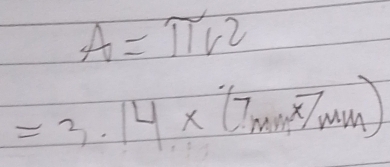 A = πr2
= 3.14 × (7mm×7mm)